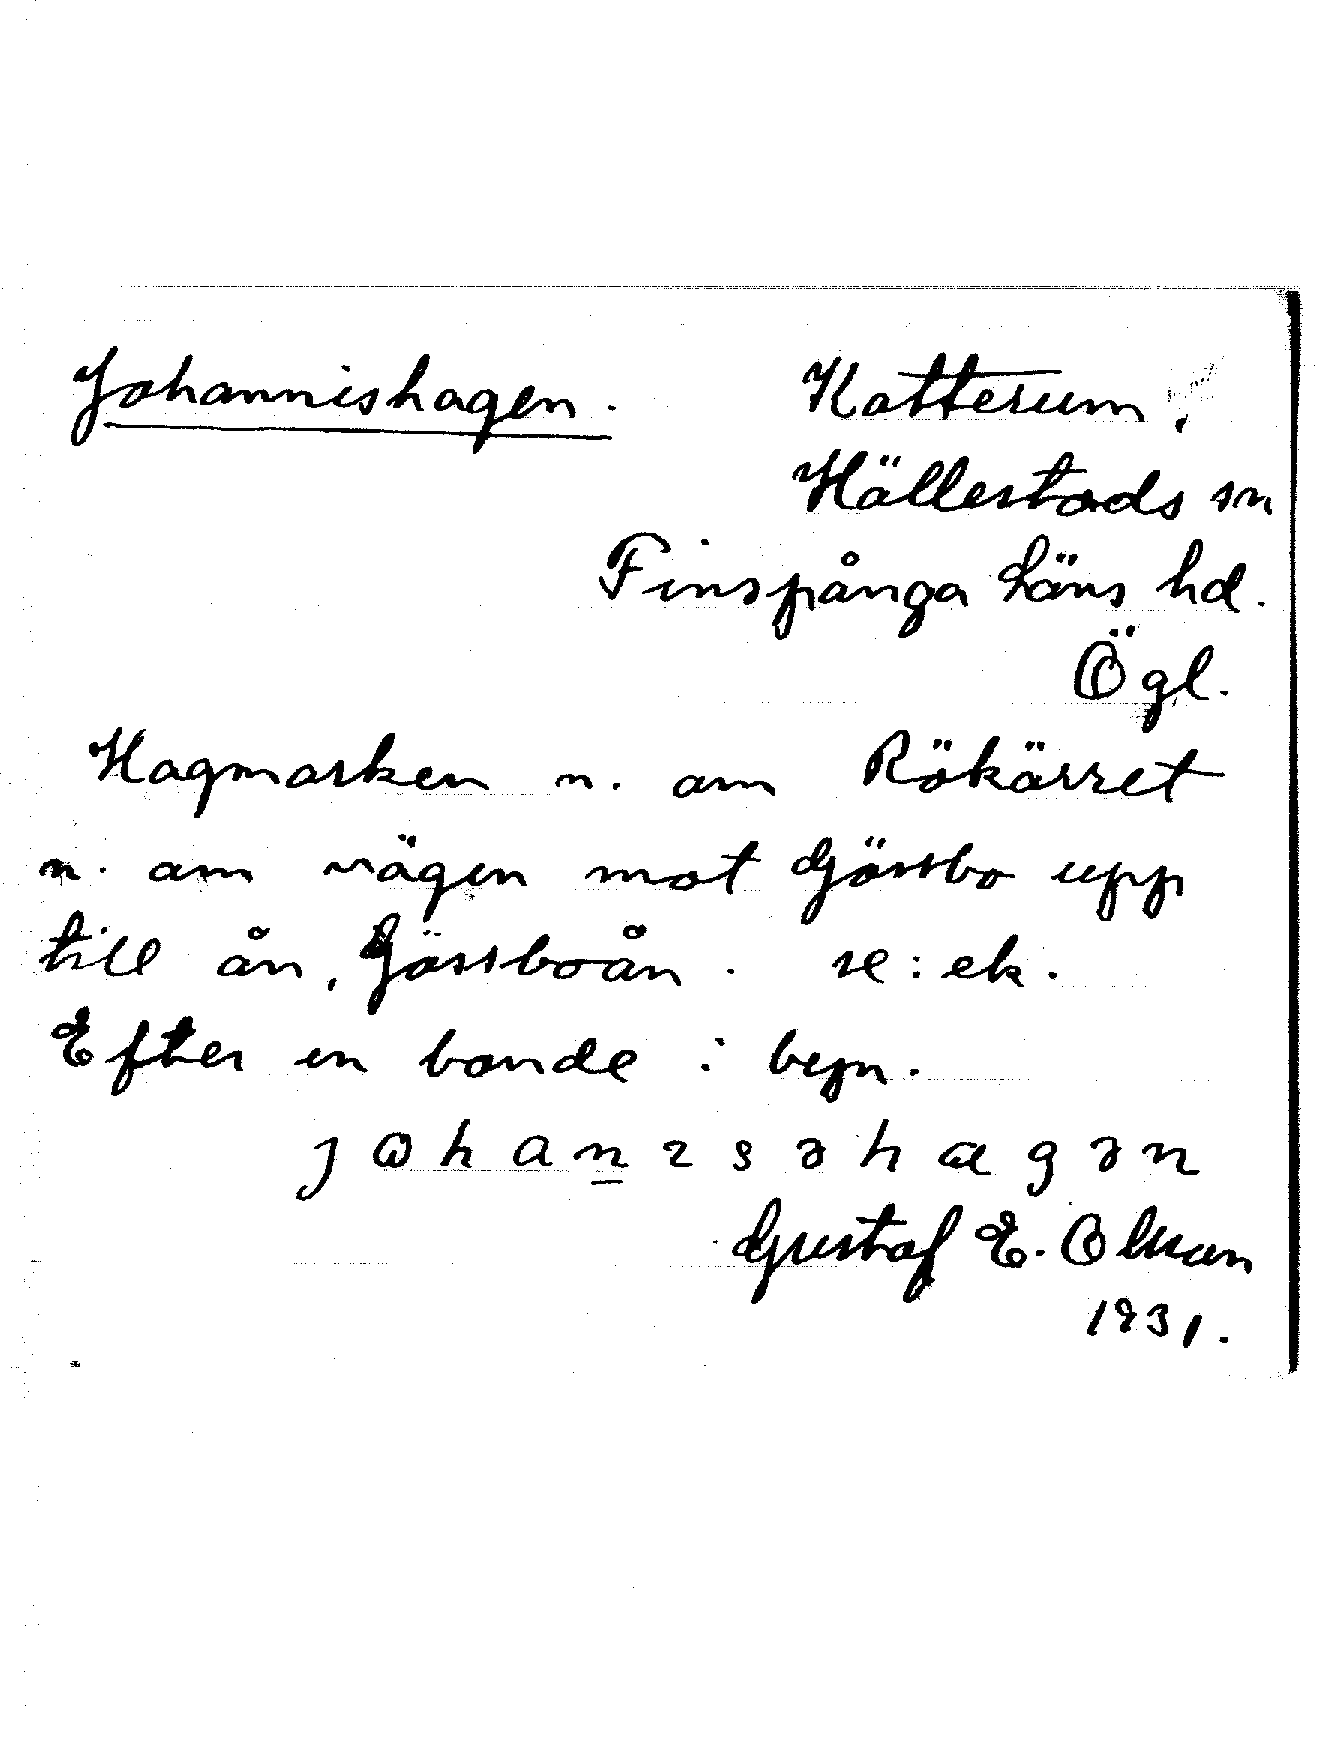 Johannishagen. Katterum,
Hällestads sn
Finspånga läns hd.
Ögl.
Hagmarken n. om Rökärret
n. om vägen mot Görsbo upp
till ån, Görsboån. se: ek.
Efter en bonde i beyn.
johanısəhagən
Gustaf E. Olsson
1931.